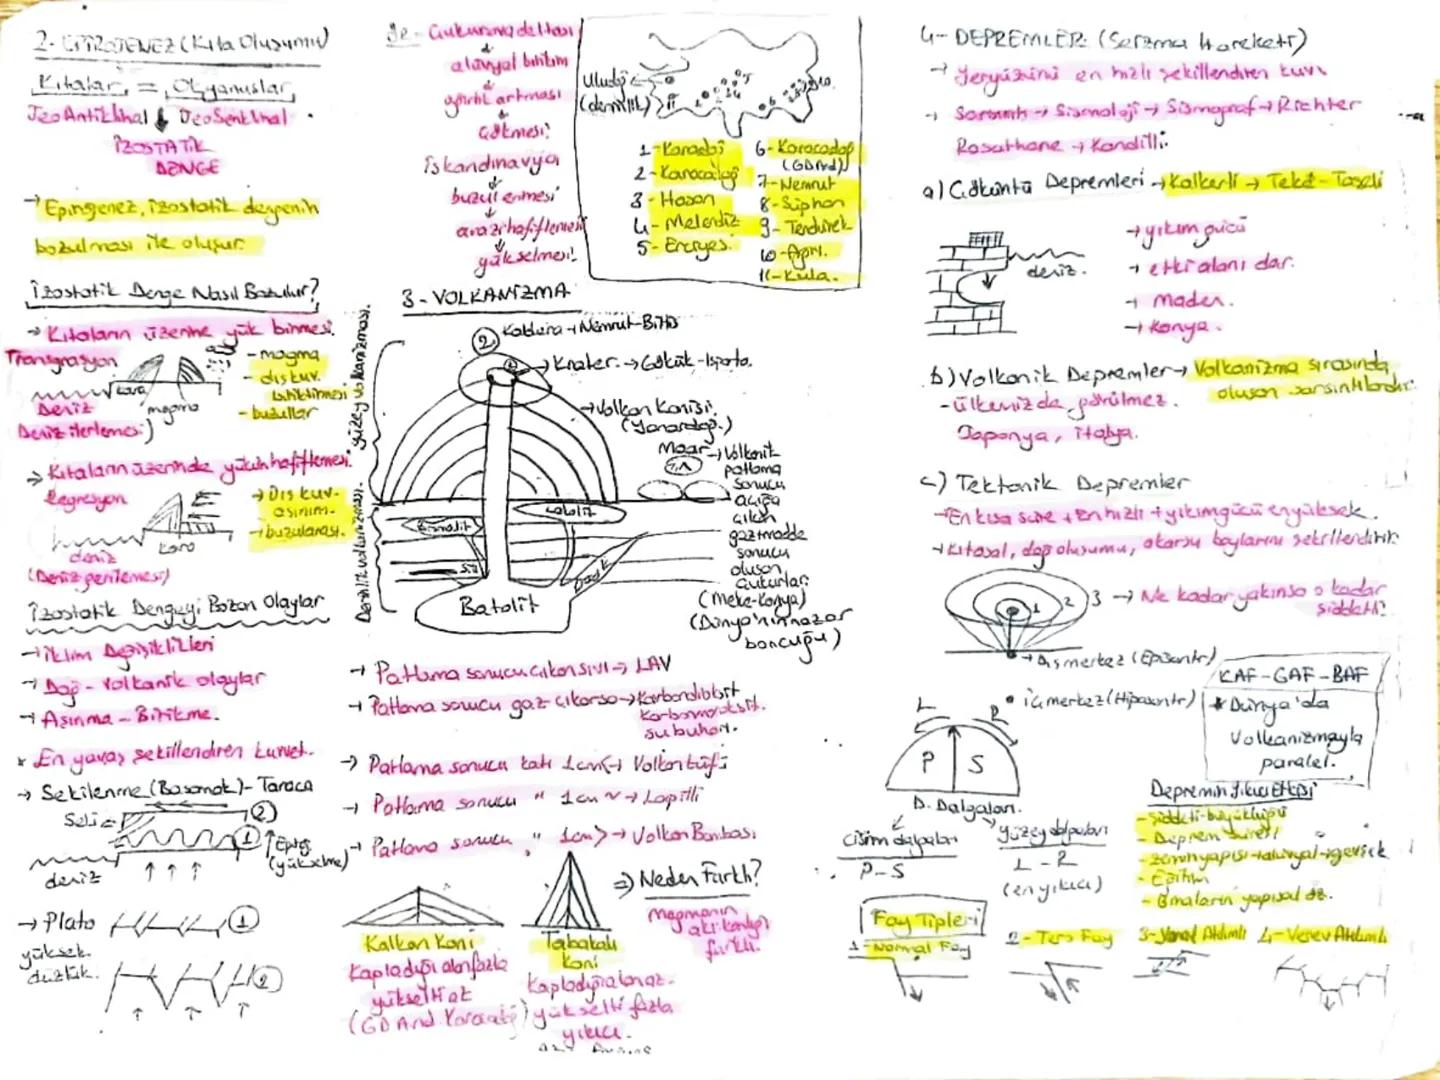 2- EPİROJENEZ (Kıta Oluşumu)
Kıtalar = Okyanuslar
JeoAntiklinal JeoSenklinal
İZOSTATİK
DENGE
→ Epirojenez, izostatik dengenin
bozulması ile oluşur.
İzostatik Denge Nasıl Bozulur?
→ Kıtaların üzerine yük binmesi.
Transgrasyon
- magma
- dış kuv.
biriktirmesi
- buzullar
kara
Deniz
magma
Deniz ilerlemesi)
→ Kıtaların üzerinde yükün hafiflemesi.
Regresyon
→ Dış kuv.
aşınım.
→ buzularası.
deniz
kara
(Deniz gerilemesi)
İzostatik Dengeyi Bozan Olaylar
→ İklim Değişiklikleri
→ Dağ - Volkanik olaylar
→ Aşınma - Biriktirme.
* En yavaş şekillendiren kuvvet.
→ Sekilenme (Basamak) - Taraça
Seki
2
1
(yükselme)
deniz
→ Plato
1
yüksek
düzlük.
2
Çukurova deltası
alüvyal birikim
ağırlık artması
çökmesi!
İskandinavya
buzul erimesi
arazi hafiflemesi
yükselmesi!
Uludağ
(derinlik)
1- Karadağ
2- Karacadağ
3- Hasan
4- Melendiz
5- Erciyes.
6- Karacadağ
(GDAnd)
7- Nemrut
8- Süphan
9- Tendürek
10- Ağrı.
11- Kula.
3- VOLKANİZMA
2
Kaldera → Nemrut-Bitlis
1
Krater. → Gölcük-Isparta.
yüzey volkanizması.
→ Volkan Konisi.
(Yanardağ.)
Maar → Volkanik
patlama
sonucu
açığa
çıkan
gaz madde
sonucu
oluşan
çukurlar.
(Meke-Konya)
(Dünya'nın nazar
boncuğu)
Derinlik volkanizması.
Lakolit
Sill
Dayk
Batolit
→ Patlama sonucu çıkan sıvı → LAV
→ Patlama sonucu gaz çıkarsa → Karbondioksit
Karbonmonoksit.
su buharı.
→ Patlama sonucu katı 1cm< → Volkan tüfü
→ Patlama sonucu " 1cm ~ → Lapilli
→ Patlama sonucu " 1cm> → Volkan Bombası
Kalkan Koni
Kapladığı alan fazla
yükselti az
(GD And Karacadağ)
Tabakalı
Koni
Kapladığı alan az.
yükselti fazla
yıkıcı.
⇒ Neden Farklı?
Magmanın
akışkanlığı
farklı.
4- DEPREMLER: (Seizma Hareketi)
→ Yeryüzünü en hızlı şekillendiren kuvv.
→ Sarsıntı → Sismoloji → Sismograf → Richter
Rasathane → Kandilli
a) Çöküntü Depremleri → Kalkerli → Teke-Taşeli
deniz.
→ yıkım gücü
→ etki alanı dar.
→ maden.
→ Konya.
b) Volkanik Depremler → Volkanizma sırasında
oluşan sarsıntılardır.
- Ülkemizde görülmez.
Japonya, İtalya.
c) Tektonik Depremler
→ En kısa süre + En hızlı + yıkım gücü en yüksek.
→ Kıtasal, dağ oluşumu, akarsu boylarını şekillendirir.
1 2 3 → Ne kadar yakınsa o kadar
şiddetli!
→ Dış merkez (Episantr)
• İç merkez (Hiposantr)
KAF - GAF - BAF
* Dünya'da
Volkanizmayla
paralel.
L R
P S
D. Dalgaları.
Cisim dalgaları
P - S
Yüzey dalgaları
L - R
(en yıkıcı)
Depremin Yıkıcı Etkisi
- Şiddeti - büyüklüğü
- Deprem süresi
- zemin yapısı → alüvyal → gevşek
- Eğitim
- Binaların yapısal öz.
Fay Tipleri
1- Normal Fay
2- Ters Fay
3- Yanal Atılımlı
4- Verev Atılımlı